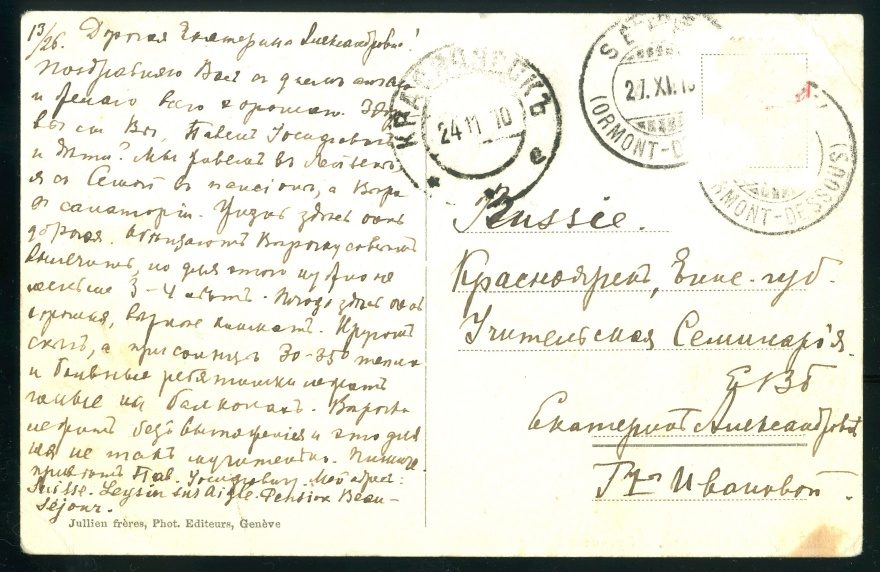 13/26. Дорогая Екатерина Александровна!
Поздравляю Васъ съ днемъ ангела
и желаю всего хорошаго. Здо-
ровы ли Вы, Павелъ Іосифовичъ
и дѣти? Мы живемъ въ
я съ Семой въ пансіонѣ, а Вѣра
въ санаторіи. Жизнь здѣсь очень
дорогая. Обѣщаютъ Вѣрочку совсѣмъ
вылечить, но для этого нужно не
меньше 3-4 лѣтъ. Погода здѣсь очень
хорошая, климатъ. Кругомъ
снѣгъ, а при солнцѣ 30-35° тепла
и больные ребятишки лежатъ
голые на балконахъ. Вѣрочка
лежитъ безъ вытяженія и это для
нея не такъ мучительно. Пишите
привѣтъ Пав. Іосифовичу. Мой адресъ:
Suisse. Leysin sus Aigle. Pension Beau-
Séjour.
Jullien frères, Phot. Editeurs, Genève
КРАСНОЯРСКЪ
24 11 10
е
SE
27.XI.10
(ORMONT-D
RMONT-DESSOUS)
Russie.
Красноярскъ, Енис. губ.
Учительская Семинарія.
ЕВБ
Екатеринѣ Александровнѣ
Г-жѣ Ивановой.